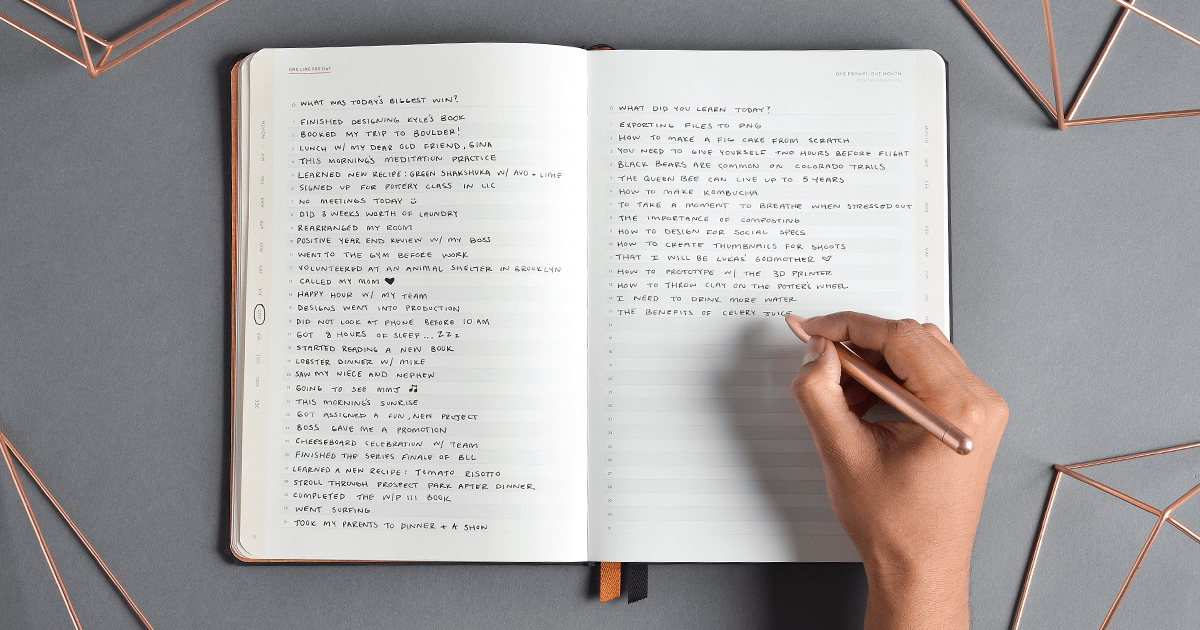 ONE LINE PER DAY
WHAT WAS TODAY'S BIGGEST WIN?
1 FINISHED DESIGNING KYLE'S BOOK
2 BOOKED MY TRIP TO BOULDER!
3 LUNCH W/ MY DEAR OLD FRIEND, GINA
4 THIS MORNING'S MEDITATION PRACTICE
5 LEARNED NEW RECIPE: GREEN SHAKSHUKA W/ AVO + LIME
6 SIGNED UP FOR POTTERY CLASS IN LIC
7 NO MEETINGS TODAY
8 DID 3 WEEKS WORTH OF LAUNDRY
9 REARRANGED MY ROOM
10 POSITIVE YEAR END REVIEW W/ MY BOSS
11 WENT TO THE GYM BEFORE WORK
12 VOLUNTEERED AT AN ANIMAL SHELTER IN BROOKLYN
13 CALLED MY MOM ♥
14 HAPPY HOUR W/ MY TEAM
15 DESIGNS WENT INTO PRODUCTION
16 DID NOT LOOK AT PHONE BEFORE 10 AM
17 GOT 8 HOURS OF SLEEP... ZZZ
18 STARTED READING A NEW BOOK
19 LOBSTER DINNER W/ MIKE
20 SAW MY NIECE AND NEPHEW
21 GOING TO SEE MMJ ♫
22 THIS MORNING'S SUNRISE
23 GOT ASSIGNED A FUN, NEW PROJECT
24 BOSS GAVE ME A PROMOTION
25 CHEESEBOARD CELEBRATION W/ TEAM
26 FINISHED THE SERIES FINALE OF BLL
27 LEARNED A NEW RECIPE: TOMATO RISOTTO
28 STROLL THROUGH PROSPECT PARK AFTER DINNER
29 COMPLETED THE W/P III BOOK
30 WENT SURFING
31 TOOK MY PARENTS TO DINNER + A SHOW
MONTH
JAN
FEB
MAR
APR
MAY
JUN
JUL
AUG
SEP
OCT
NOV
DEC
ONE PROMPT, ONE MONTH
WHAT DID YOU LEARN TODAY?
1 EXPORTING FILES TO PNG
2 HOW TO MAKE A FIG CAKE FROM SCRATCH
3 YOU NEED TO GIVE YOURSELF TWO HOURS BEFORE FLIGHT
4 BLACK BEARS ARE COMMON ON COLORADO TRAILS
5 THE QUEEN BEE CAN LIVE UP TO 5 YEARS
6 HOW TO MAKE KOMBUCHA
7 TO TAKE A MOMENT TO BREATHE WHEN STRESSED OUT
8 THE IMPORTANCE OF COMPOSTING
9 HOW TO DESIGN FOR SOCIAL SPECS
10 HOW TO CREATE THUMBNAILS FOR SHOOTS
11 THAT I WILL BE LUKAS' GODMOTHER ♡
12 HOW TO PROTOTYPE W/ THE 3D PRINTER
13 HOW TO THROW CLAY ON THE POTTER'S WHEEL
14 I NEED TO DRINK MORE WATER
15 THE BENEFITS OF CELERY JUICE
16
17
18
19
20
21
22
23
24
25
26
27
28
29
30
31
MONTH
JAN
FEB
MAR
APR
MAY
JUN
JUL